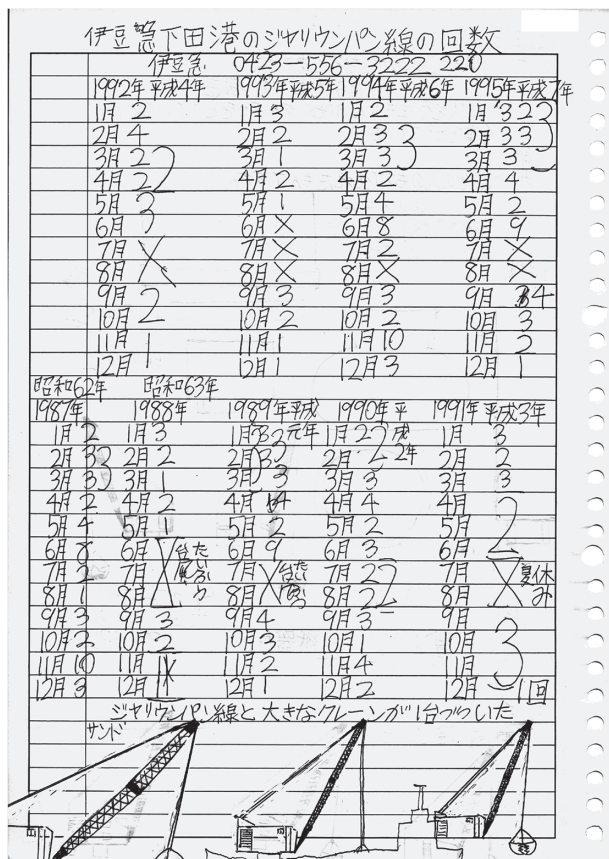 伊豆急下田港のジャリウンパン線の回数
伊豆急 0423-556-3222 220
1992年平成4年 1993年平成5年 1994年平成6年 1995年平成7年
1月 2 1月 3 1月 2 1月 323
2月 4 2月 2 2月 33 2月 33
3月 2 3月 1 3月 3 3月 3
4月 2 4月 2 4月 2 4月 4
5月 3 5月 1 5月 4 5月 2
6月 6月 × 6月 8 6月 9
7月 × 7月 × 7月 2 7月 ×
8月 8月 × 8月 × 8月 ×
9月 2 9月 3 9月 3 9月 4
10月 10月 2 10月 2 10月 3
11月 1 11月 1 11月 10 11月 2
12月 12月 1 12月 3 12月 1
昭和62年 昭和63年
1987年 1988年 1989年平成元年 1990年平成2年 1991年平成3年
1月 2 1月 3 1月 32 1月 22 1月 3
2月 33 2月 2 2月 32 2月 2 2月 2
3月 3 3月 1 3月 3 3月 3 3月 3
4月 2 4月 2 4月 4 4月 4 4月 2
5月 4 5月 1 5月 2 5月 2 5月
6月 8 6月 × 台たいふう 6月 9 6月 3 6月
7月 2 7月 7月 × 台たい 7月 22 7月 × 夏休み
8月 1 8月 8月 8月 2 8月
9月 3 9月 3 9月 4 9月 3 9月 3
10月 2 10月 2 10月 3 10月 1 10月
11月 10 11月 11月 2 11月 4 11月
12月 3 12月 12月 1 12月 2 12月 1回
ジャリウンパン線と大きなクレーンが1台づついた
サンド